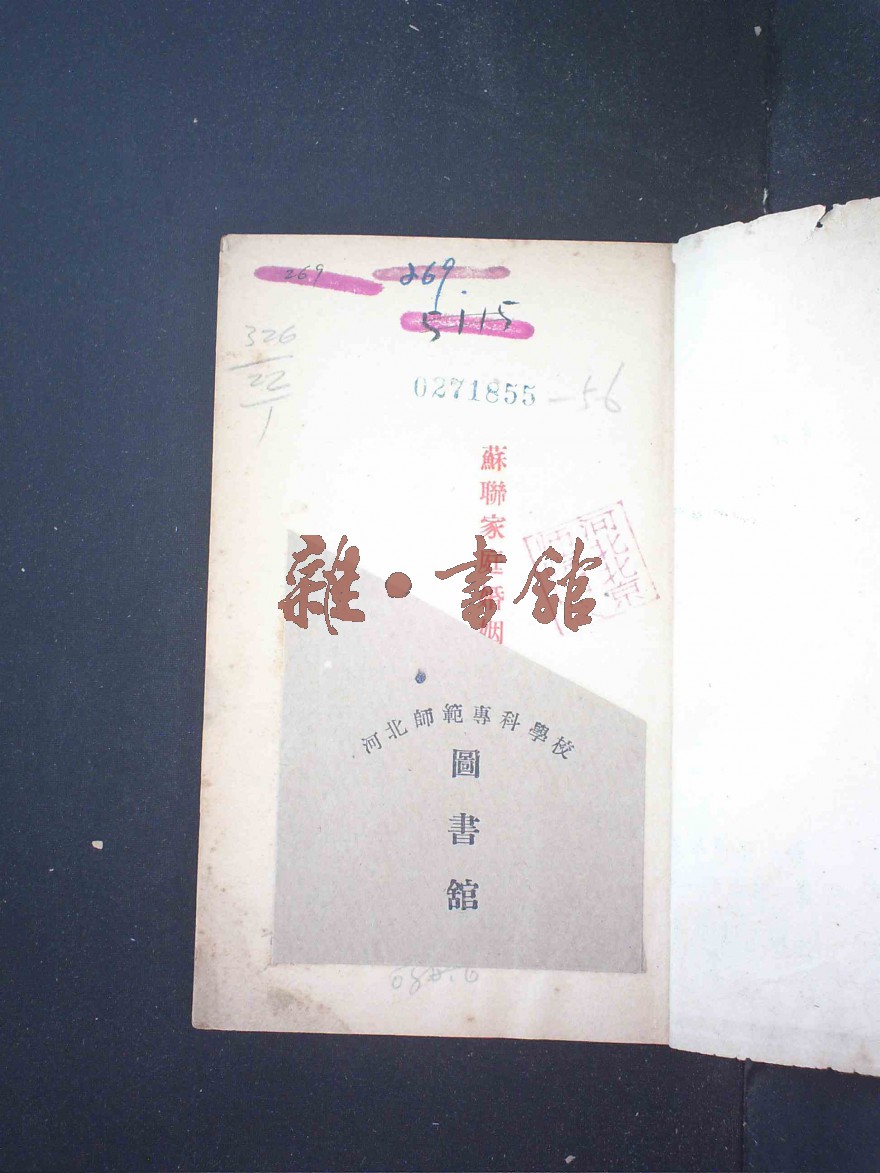 269
269
5115
326
22
1
0271855 -56
蘇聯家庭婚姻
河北北京
雜·書館
河北師範專科學校
圖
書
舘